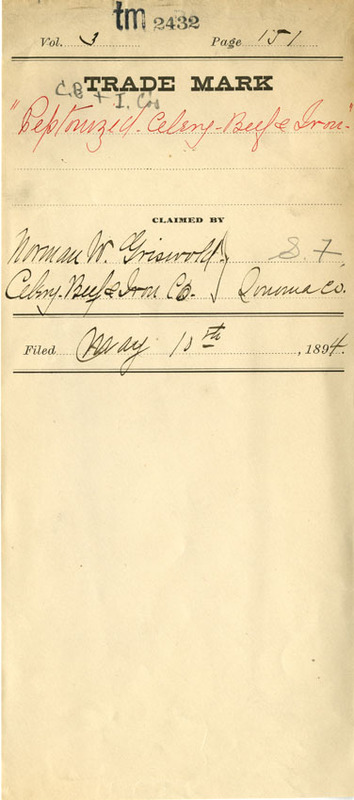 tm 2432
Vol. 3 Page 151
TRADE MARK
C.B + I. Cos
"Peptonized Celery-Beef & Iron"
CLAIMED BY
Norman W. Griswold } S. F.
Celery-Beef & Iron Co. } Sonoma Co.
Filed May 10th, 1894.